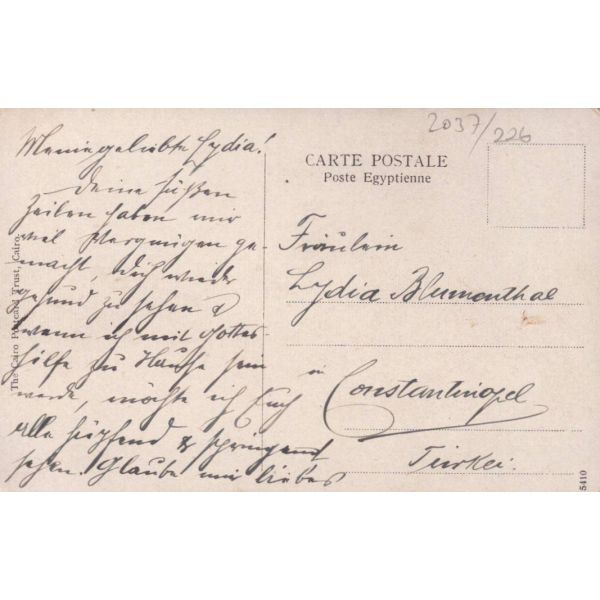 2037/226
Meine geliebte Lydia!
Deine süßen
Zeilen haben mir
viel Vergnügen ge-
macht, Dich wieder
gesund zu sehen &
wenn ich mit Gottes-
hilfe zu Hause sein
werde, möchte ich Euch
Alle hüpfend & springend
sehen. Glaube mir liebes
CARTE POSTALE
Poste Egyptienne
Fräulein
Lydia Blumenthal
in
Constantinopel
Türkei.
The Cairo Postcard Trust, Cairo.
5410